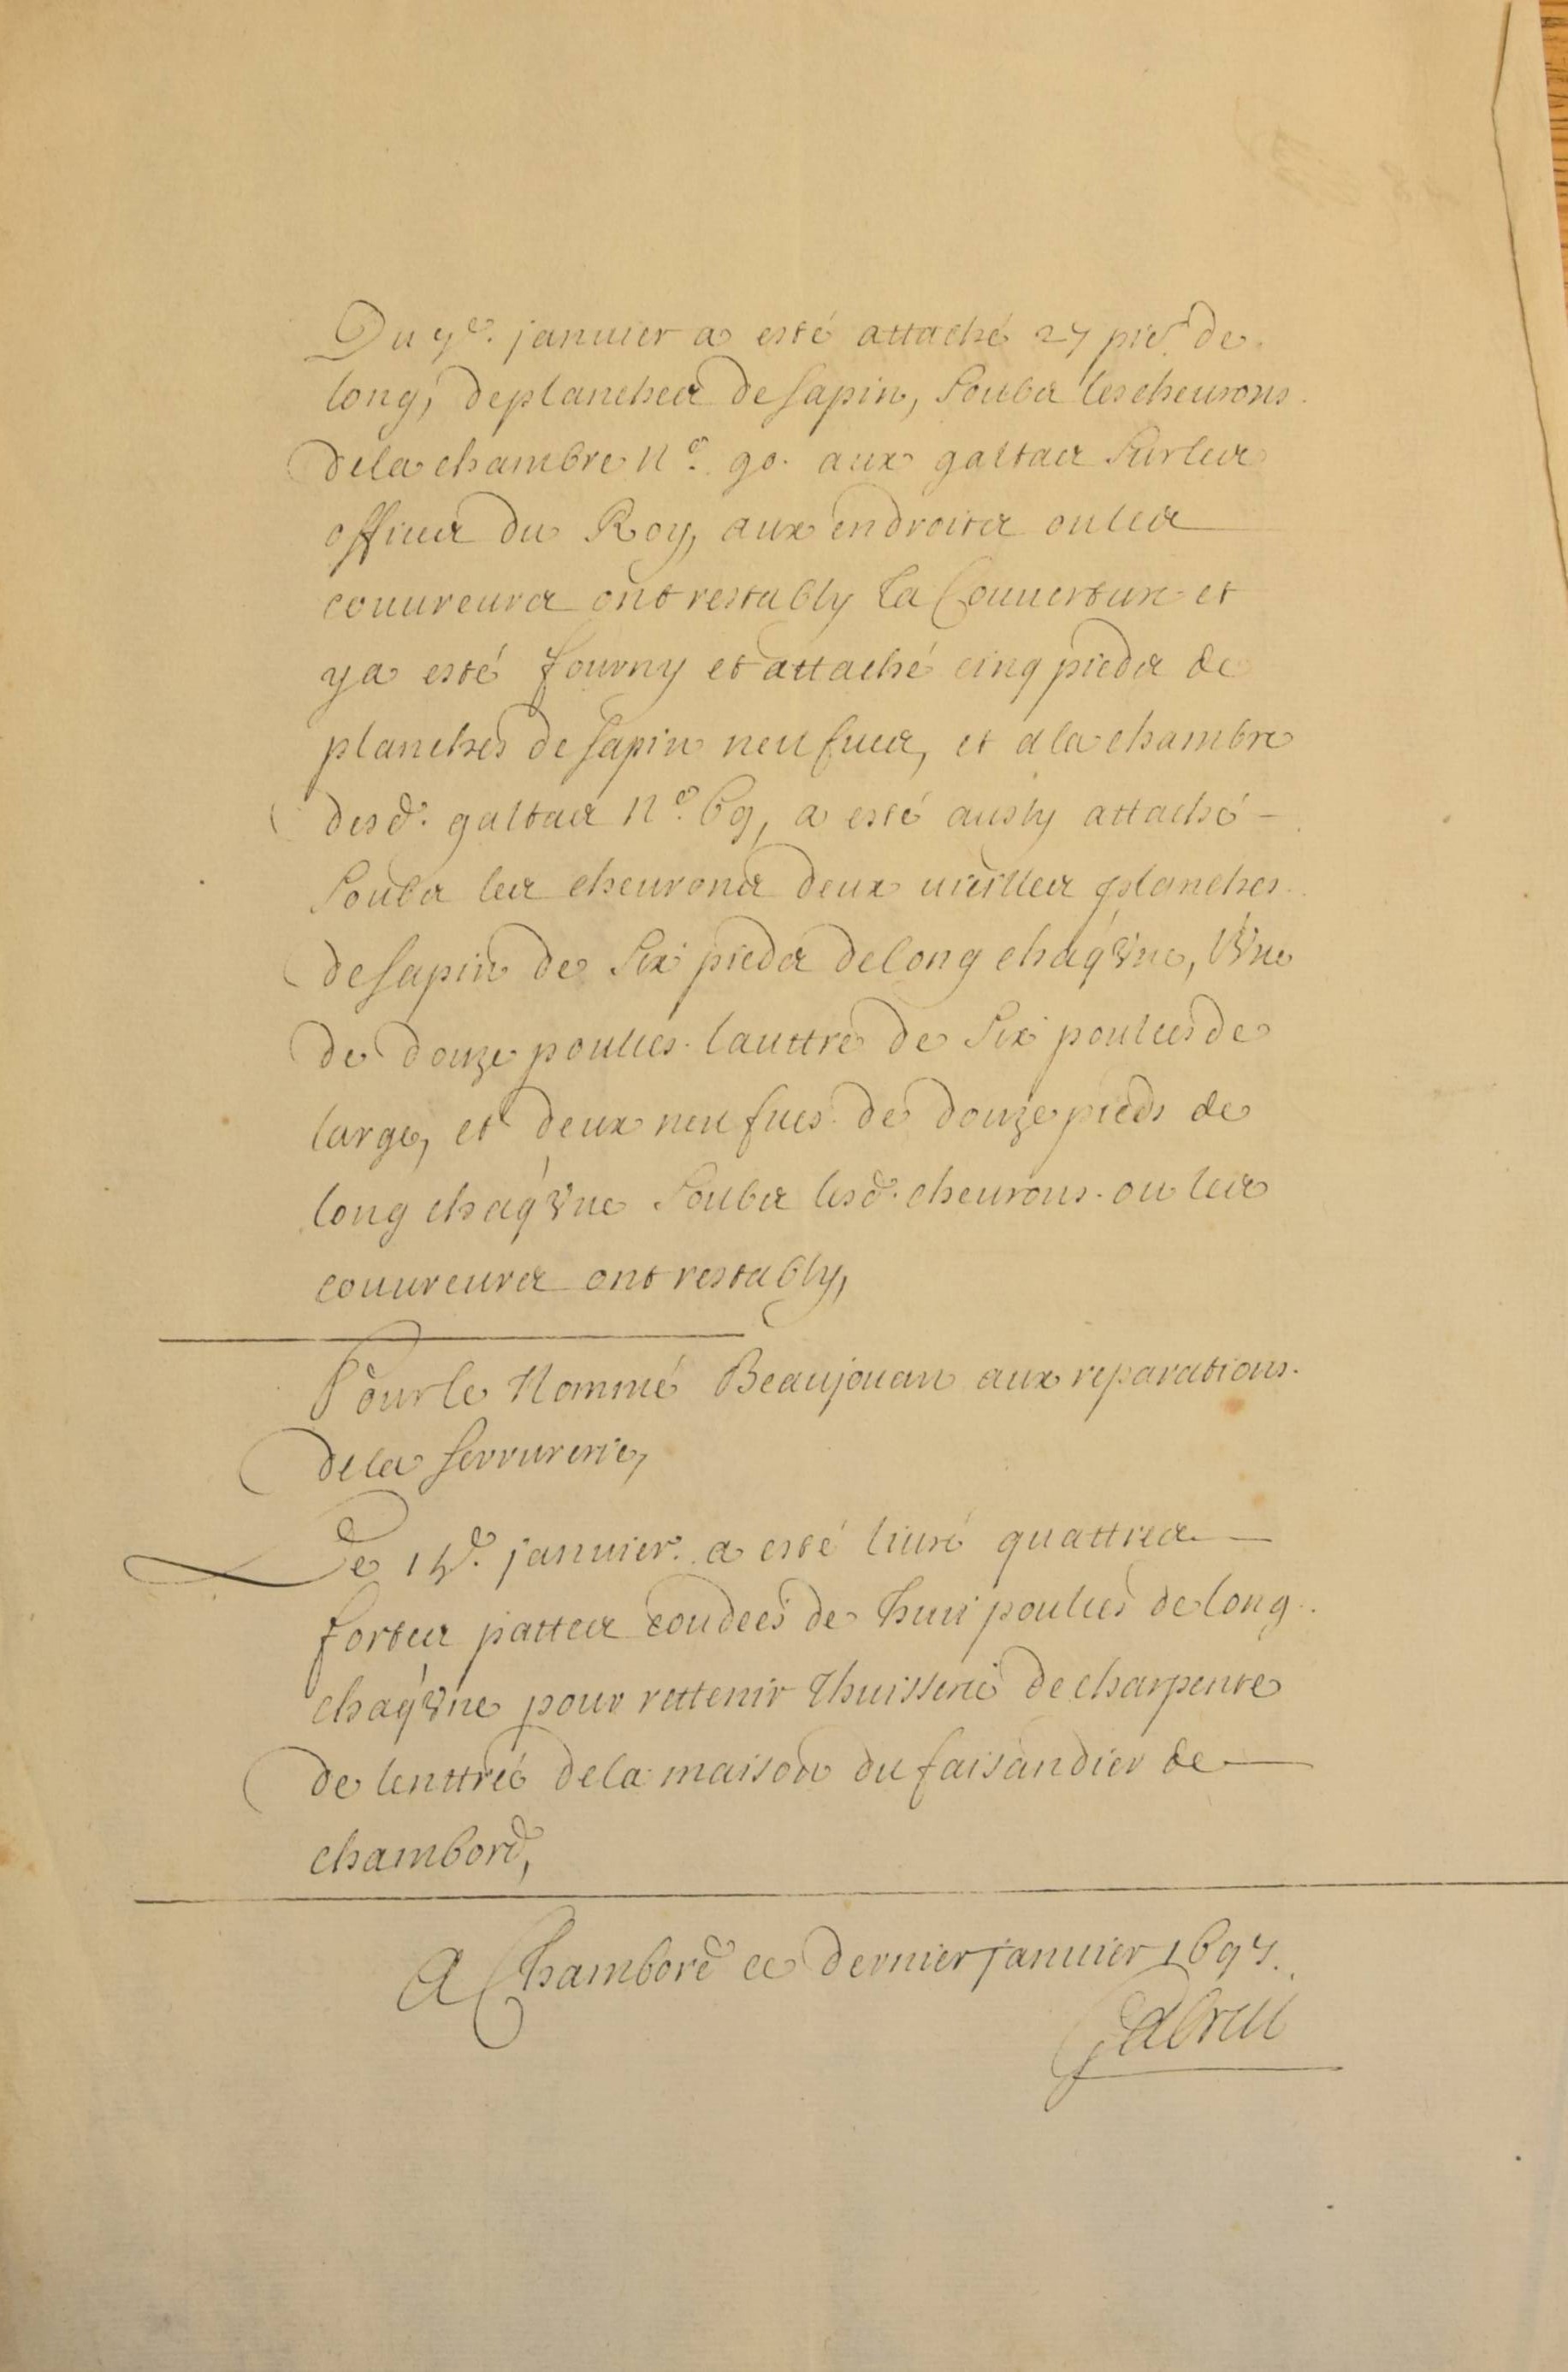 Du 7e. januier a esté attaché 27 pied. de
long, de planches de sapin, soubs les cheurons
de la chambre no. 90. aux galtas sur les
offices du Roy, aux endroits ou les
couureurs ont restably la Couuerture et
y a esté fourny et attaché cinq pieds de
planches de sapin neufues, et a la chambre
desd. galtas no. 69, a esté aussy attaché
soubs les cheurons deux vieilles planches
de sapin de six pieds de long chaqune, Une
de douze poulces lauttre de six poulces de
large, et deux neufues de douze pieds de
long chaqune soubs lesd. cheurons ou les
couureurs ont restably,
Pour le Nommé Beaujouan aux reparations
de la serrurerie,
Le 15e. januier a esté liuré quattres
fortes pattes coudées de huit poulces de long
chaqune pour rettenir Lhuisserie de charpente
de lenttrée de la maison du faisandier de
chambord,
A Chambord ce dernier januier 1697.
Gabriel